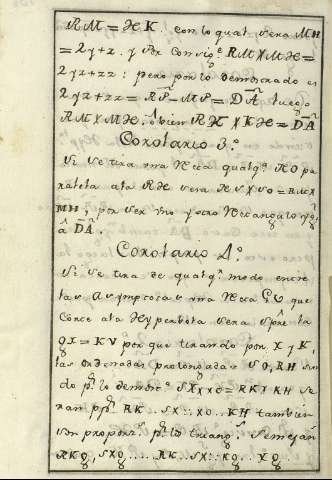 RM = HK con lo qual sera MH
= 2y+z. y Por Consigᵉ RM X MH =
2yz+zz: pero por lo demostrado es
2yz+zz = RP²−MP² = DA² luego
RM X MH, o bien RK X KH = DA²
Corolario 3.º
Si se tira una Recta qualqᵃ NO pa
ralela a la RH sera NS X SO = RM X
MH, por ser uno y otro Rectangulo
a DA².
Corolario 4.º
Si se tira de qualqᵉ modo entre
las Asymptotas una Recta que
Corte a la Hyperbola sera Spʳᵉ la
QX = KV porque tirando por X y K,
las ordenadas prolongadas SO, RH sien
do pʳ lo demostrᵒ SX X XO = RK X KH se
ran RK . SX :: XO . . KH tambien
son proporˢ pʳ los triangˢ Semejanᵗ
RKQ, SXQ .... RK . SX :: KQ . . XQ ..